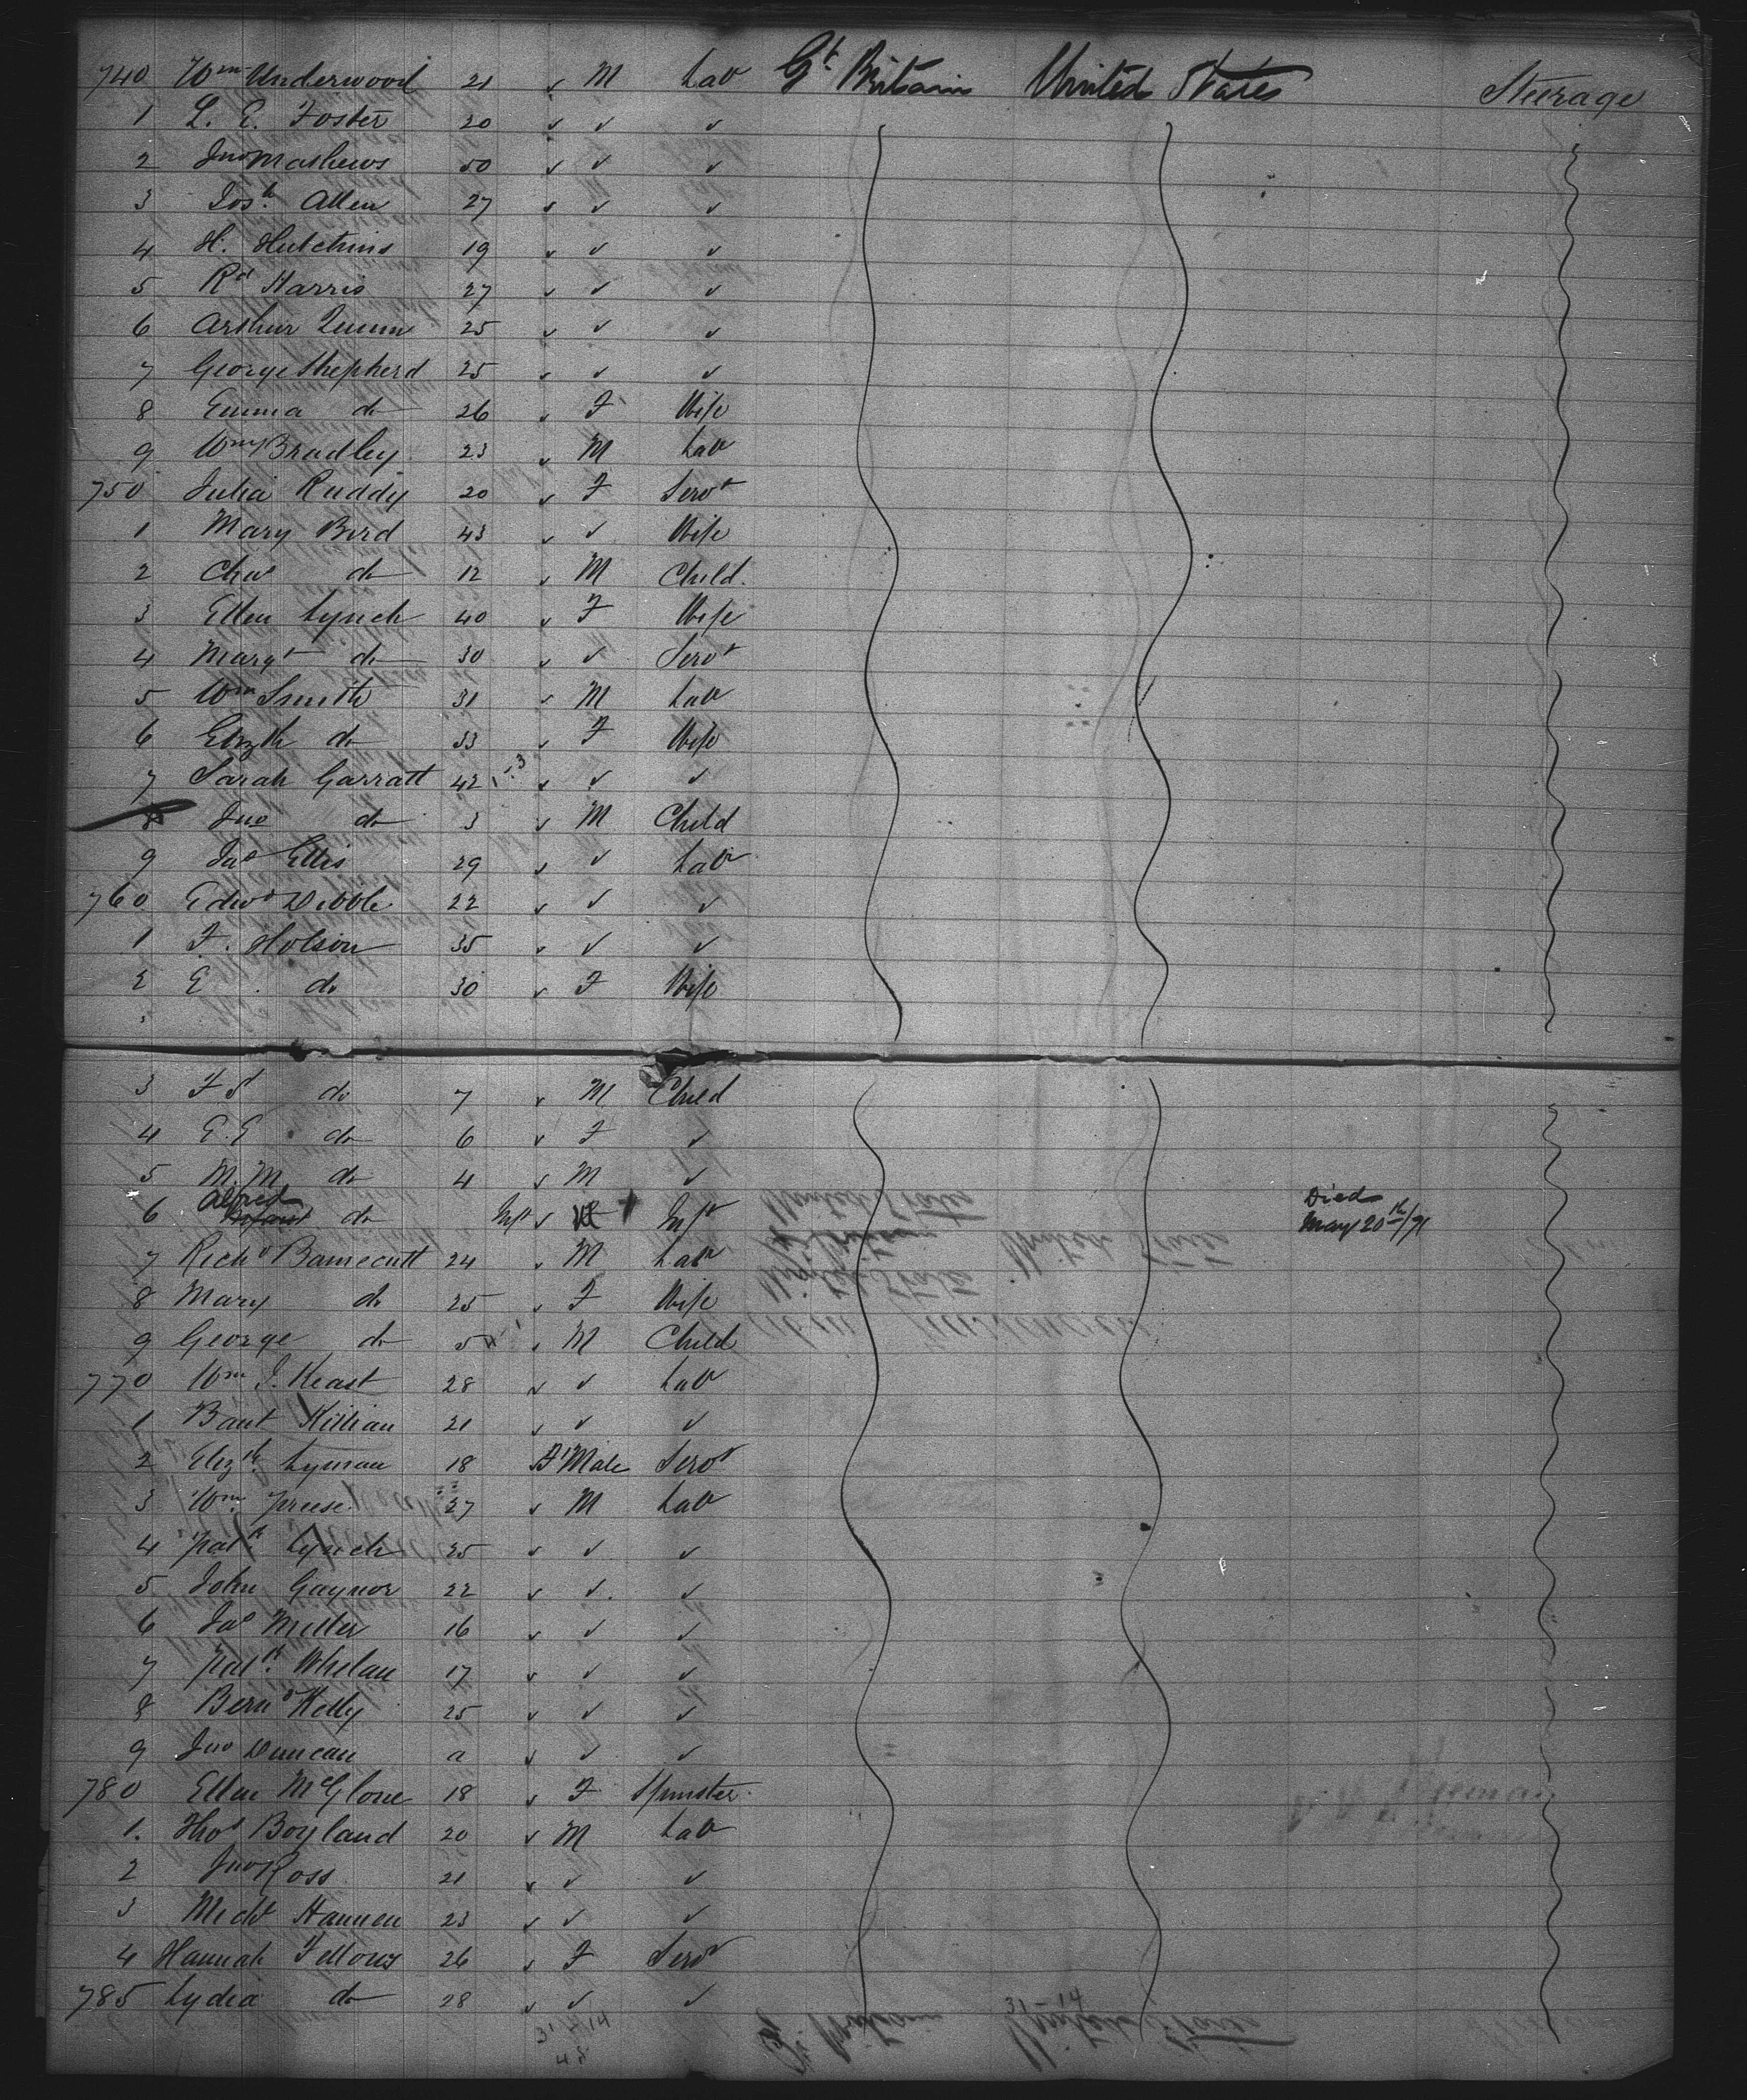 740 Wm Underwood 21 ✓ M Lab Gt Britain United States Steerage
1 L. E. Foster 20 ✓ ✓ ✓
2 Jno Mathews 50 ✓ ✓ ✓
3 Josh. Allen 27 ✓ ✓ ✓
4 H. Hutchins 19 ✓ ✓ ✓
5 Rd Harris 27 ✓ ✓ ✓
6 Arthur Quinn 25 ✓ ✓ ✓
7 George Shepherd 25 ✓ ✓ ✓
8 Emma do 26 ✓ F Wife
9 Wm Bradley 23 ✓ M Lab
750 Julia Ruddy 20 ✓ F Servt
1 Mary Bird 43 ✓ ✓ Wife
2 Chas do 12 ✓ M Child.
3 Ellen Lynch 40 ✓ F Wife
4 Margt do 30 ✓ ✓ Servt
5 Wm Smith 31 ✓ M Lab
6 Elizth do 33 ✓ F Wife
7 Sarah Garratt 42 ✓ ✓ ✓
8 Jno do 3 ✓ M Child
9 Jas Ellis 29 ✓ ✓ Lab
760 Edwd Dibble 22 ✓ ✓ ✓
1 F. Holson 35 ✓ ✓ ✓
2 E. do 30 ✓ F Wife
3 F S do 7 ✓ M Child
4 E. E do 6 ✓ F ✓
5 M. M do 4 ✓ M ✓
6 Alfred do Inft ✓ Inft Died May 20th/71
7 Richd Bamecutt 24 ✓ M Lab
8 Mary do 25 ✓ F Wife
9 George do 5 ✓ M Child
770 Wm J. Keast 28 ✓ ✓ Lab
1 Bant Killian 21 ✓ ✓ ✓
2 Elizth Lyman 18 Male Servt
3 Wm. Preese 27 ✓ M Lab
4 Patk Lynch 25 ✓ ✓ ✓
5 John Gaynor 22 ✓ ✓ ✓
6 Jas Miller 16 ✓ ✓ ✓
7 Patk. Whelan 17 ✓ ✓ ✓
8 Bernd Kelly 25 ✓ ✓ ✓
9 Jno Duncan a ✓ ✓ ✓
780 Ellen McGlone 18 ✓ F Spinster
1. Thos Boyland 20 ✓ M Lab
2 Jno Ross 21 ✓ ✓ ✓
3 Michl Hannen 23 ✓ ✓ ✓
4 Hannah Fellows 26 ✓ F Servt
785 Lydia do 28 ✓ ✓ ✓
31-14